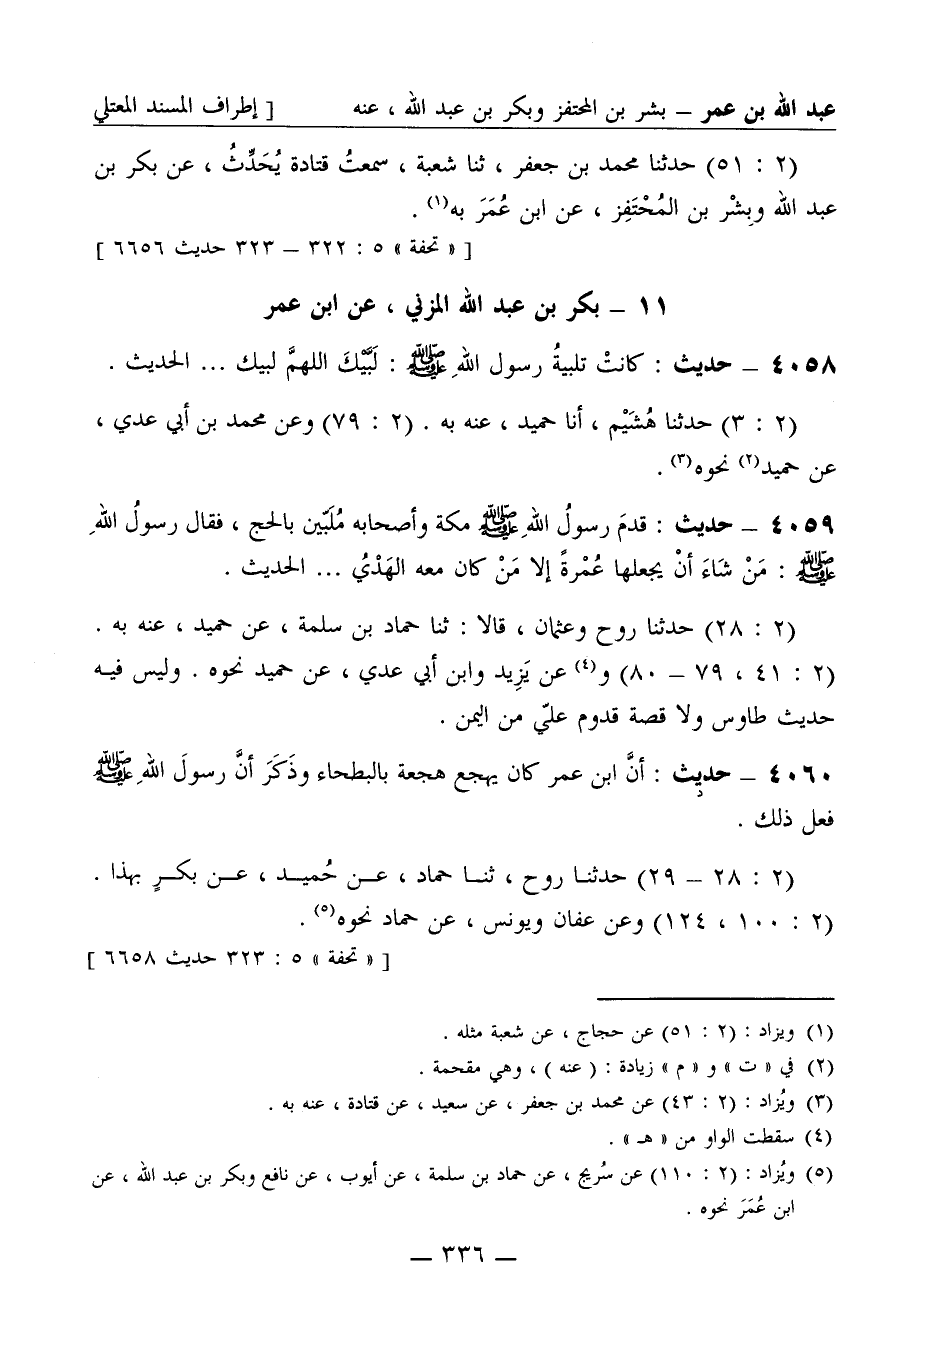 عبد الله بن عمر – بشر بن المحتفز وبكر بن عبد الله ، عنه [ إطراف المسند المعتلي
(٢ : ٥١) حدثنا محمد بن جعفر ، ثنا شعبة ، سمعتُ قتادة يُحَدِّثُ ، عن بكر بن
عبد الله وبِشْر بن المُحْتَفِز ، عن ابن عُمَرَ به(١) .
[ « تحفة » ٥ : ٣٢٢ – ٣٢٣ حديث ٦٦٥٦ ]
١١ – بكر بن عبد الله المزني ، عن ابن عمر
٤٠٥٨ – حديث : كانتْ تلبيةُ رسول اللهِ ﷺ : لَبَّيْكَ اللهمَّ لبيك ... الحديث .
(٢ : ٣) حدثنا هُشَيْم ، أنا حميد ، عنه به . (٢ : ٧٩) وعن محمد بن أبي عدي ،
عن حميد(٢) نحوه(٣) .
٤٠٥٩ – حديث : قدمَ رسولُ اللهِ ﷺ مكة وأصحابه مُلَبّين بالحج ، فقال رسولُ اللهِ
ﷺ : مَنْ شَاءَ أنْ يجعلها عُمْرةً إلا مَنْ كان معه الهَدْيُ ... الحديث .
(٢ : ٢٨) حدثنا روح وعثمان ، قالا : ثنا حماد بن سلمة ، عن حميد ، عنه به .
(٢ : ٤١ ، ٧٩ – ٨٠) و(٤) عن يَزِيد وابن أبي عدي ، عن حميد نحوه . وليس فيه
حديث طاوس ولا قصة قدوم عليّ من اليمن .
٤٠٦٠ – حديث : أنَّ ابن عمر كان يهجع هجعة بالبطحاء وذَكَرَ أنَّ رسولَ اللهِ ﷺ
فعل ذلك .
(٢ : ٢٨ – ٢٩) حدثنا روح ، ثنا حماد ، عن حُميد ، عن بكرٍ بهذا .
(٢ : ١٠٠ ، ١٢٤) وعن عفان ويونس ، عن حماد نحوه(٥) .
[ « تحفة » ٥ : ٣٢٣ حديث ٦٦٥٨ ]
(١) ويزاد : (٢ : ٥١) عن حجاج ، عن شعبة مثله .
(٢) في « ت » و « م » زيادة : ( عنه ) ، وهي مقحمة .
(٣) ويُزاد : (٢ : ٤٣) عن محمد بن جعفر ، عن سعيد ، عن قتادة ، عنه به .
(٤) سقطت الواو من « هـ » .
(٥) ويُزاد : (٢ : ١١٠) عن سُريج ، عن حماد بن سلمة ، عن أيوب ، عن نافع وبكر بن عبد الله ، عن
ابن عُمَرَ نحوه .
– ٣٣٦ –